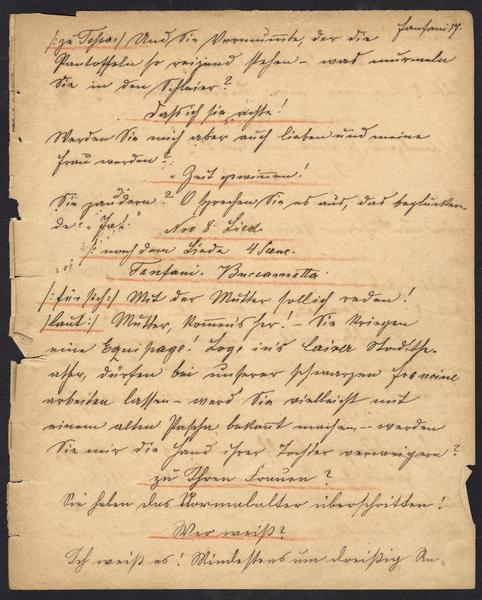 fanfani 14.
/: zu Tessa :/ Und Sie Vermummte, der die
Pantoffeln so reizend stehen – was murmeln
Sie in den Schleier?
Dass ich sie achte!
Werden Sie mich aber auch lieben und meine
Frau werden?
" Zeit gewinnen!
Sie zaudern? O sprechen Sie es aus, das beglücken-
de: "Ja".
No 8. Lied.
/: nach dem Liede 4 Scene.
Fanfani. Buccametta.
/: für sich :/ Mit der Mutter soll ich reden!
/ laut :/ Mutter, kommen's her! – Sie kriegen
eine Equipage! Loge in's Cairer Stadtthe-
ater, dürfen bei unserer schwarzen Francine
arbeiten lassen – werd Sie vielleicht mit
einem alten Pascha bekannt machen – werden
Sie mir die Hand ihrer Tochter verweigern?
zu Ihren Frauen?
Sie haben das Normalalter überschritten!
Wer weiß?
Ich weiß es! Mindestens um dreißig